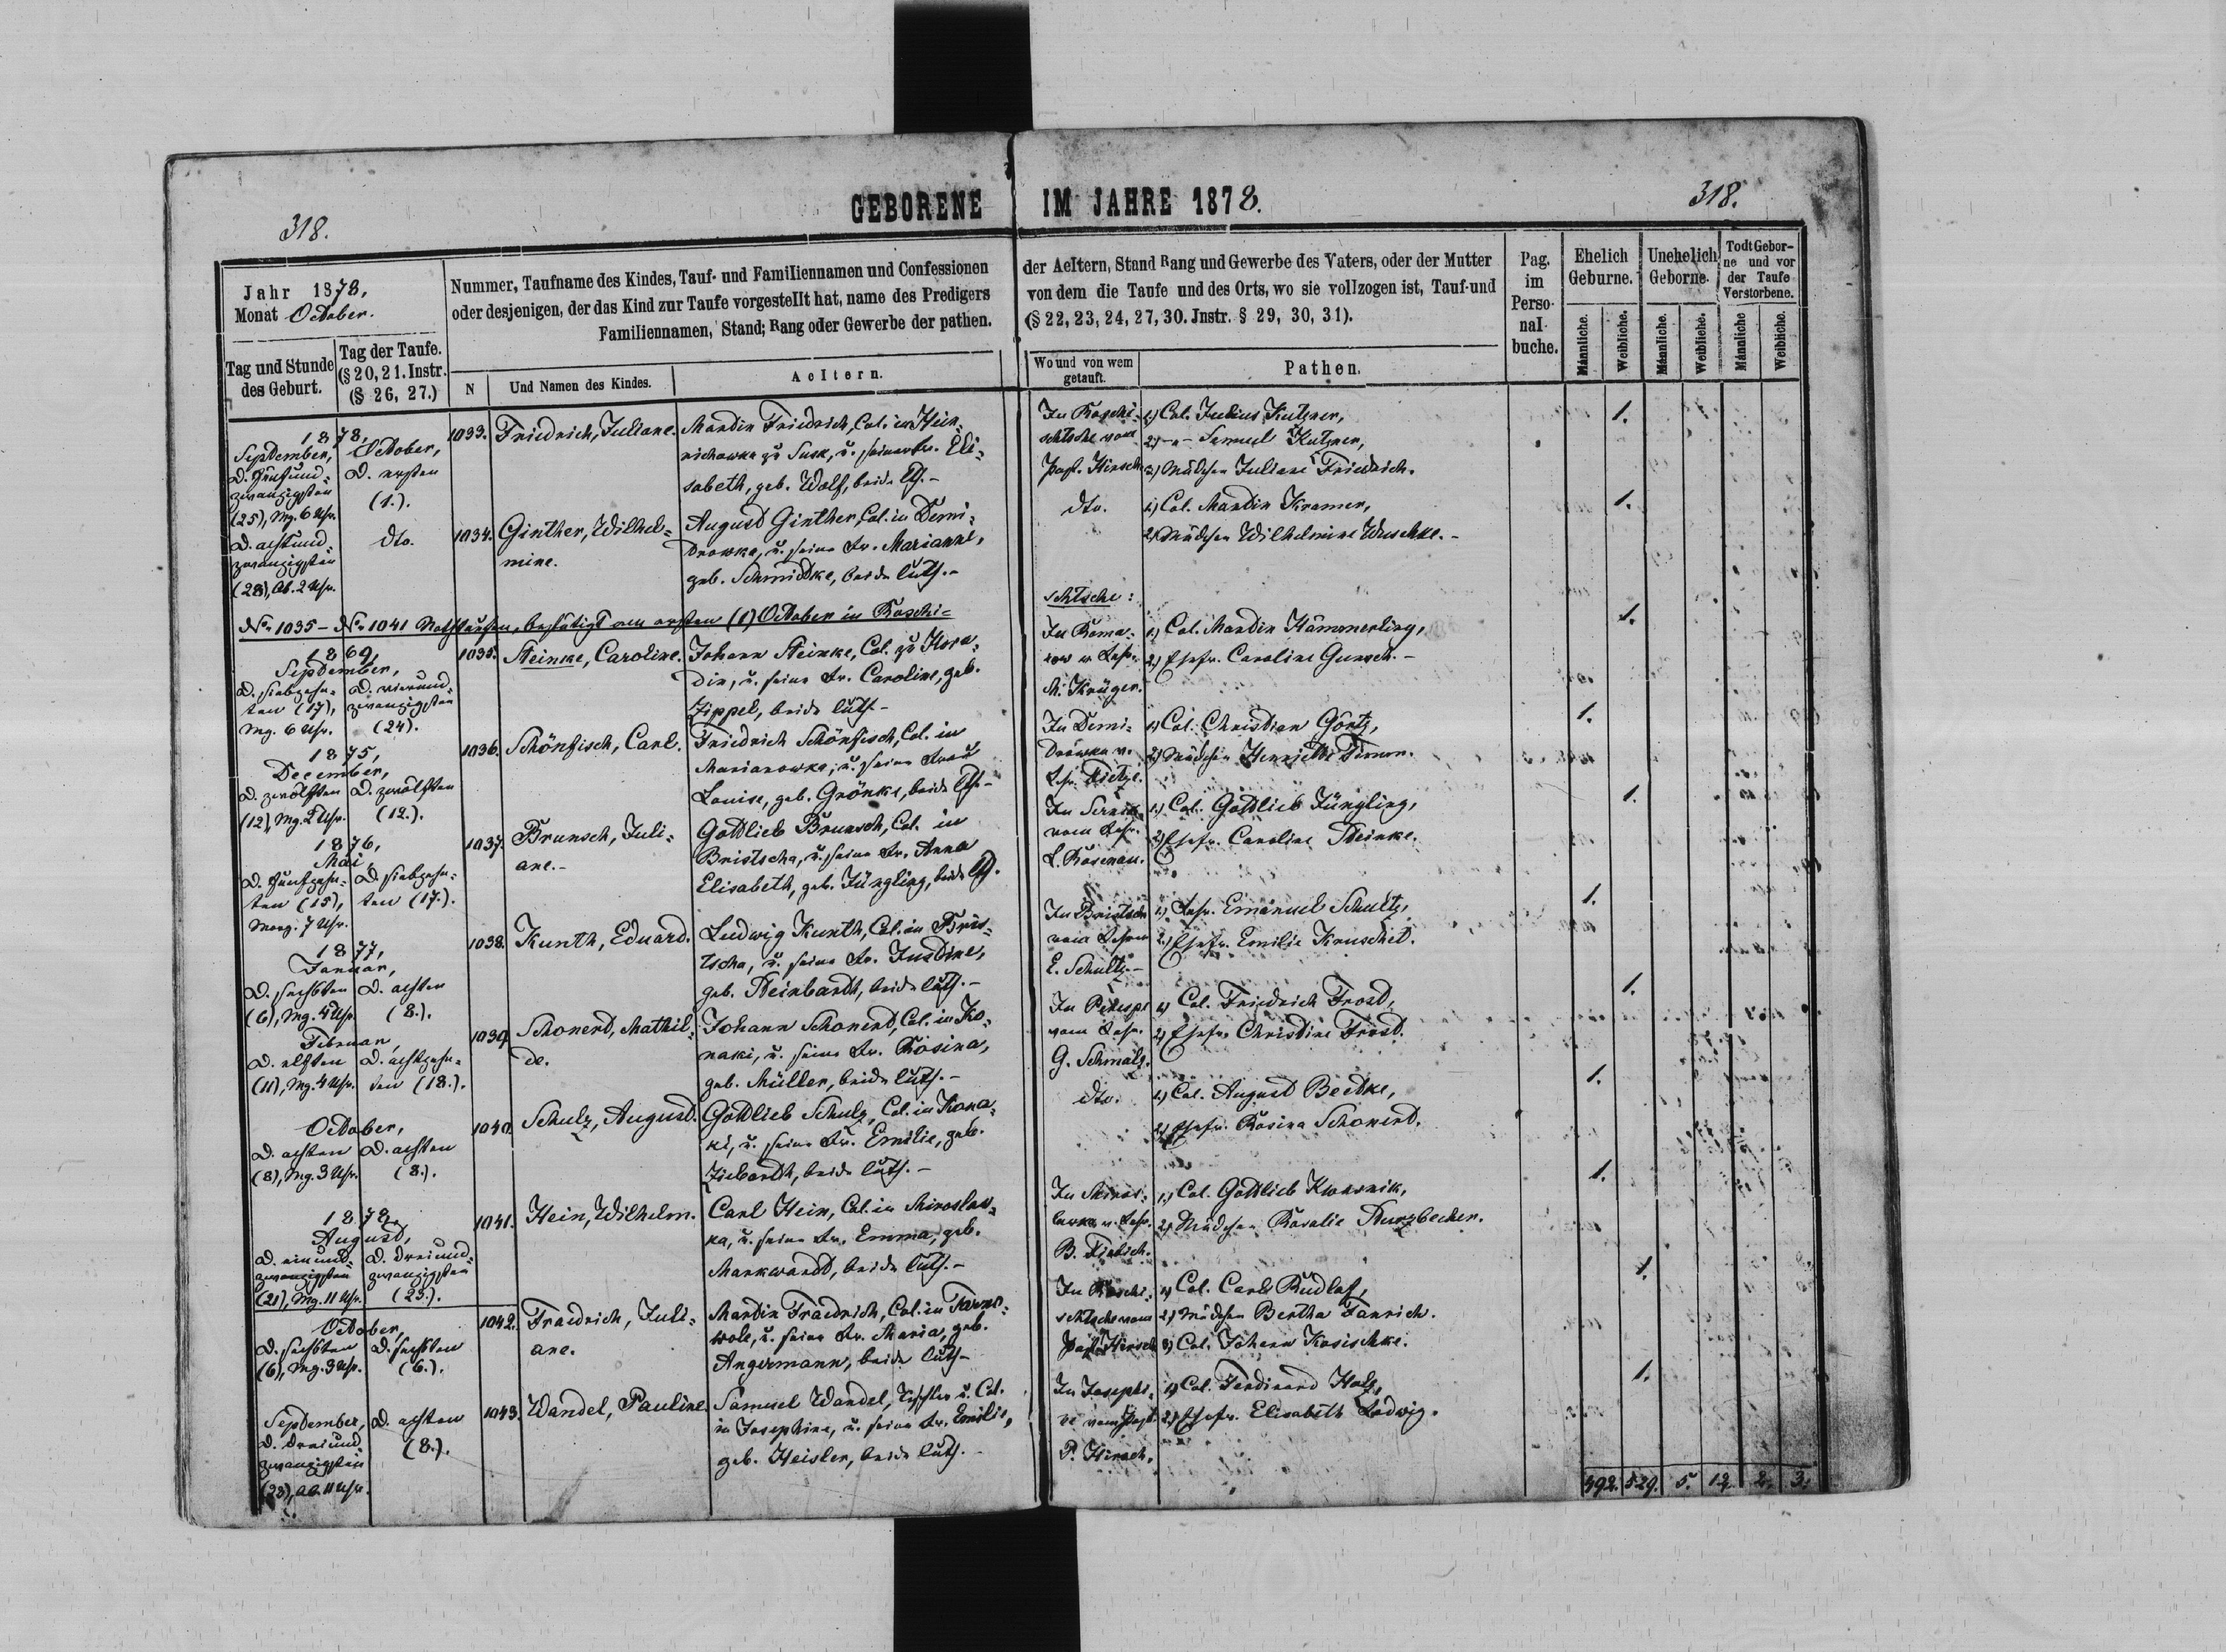 318.
GEBORENE IM JAHRE 1878.
318.
Jahr 1878,
Monat October.
Tag und Stunde des Geburt.
Tag der Taufe. (§ 20, 21. Instr. (§ 26, 27.)
Nummer, Taufname des Kindes, Tauf- und Familiennamen und Confessionen
oder desjenigen, der das Kind zur Taufe vorgestellt hat, name des Predigers
Familiennamen, Stand; Rang oder Gewerbe der pathen.
N
Und Namen des Kindes.
Aeltern.
der Aeltern, Stand Rang und Gewerbe des Vaters, oder der Mutter
von dem die Taufe und des Orts, wo sie vollzogen ist, Tauf-und
(§ 22, 23, 24, 27, 30. Jnstr. § 29, 30, 31).
Wo und von wem getauft.
Pathen.
Pag. im Perso-nal-buche.
Ehelich Geburne.
Unehelich Geborne.
Todt Gebor-ne und vor der Taufe Verstorbene.
Männliche.
Weibliche.
Männliche.
Weibliche.
Männliche
Weibliche.
1878,
September, October,
d. fünfund- d. ersten
zwanzigsten (1.).
(25), Mg. 6 Uhr.
1033. Friedrich, Juliane.
Martin Friedrich, Col. in Hein-
richowka zu Susk, u. seiner Fr. Eli-
sabeth, geb. Wolf, beide lth.-
In Roschi-
schtsche vom
Past. Hirsch
1.) Col. Julius Kutzner,
2.) -"- Samuel Kutzner,
3.) Mädchen Juliane Friedrich.
1.
d. achtund- dto.
zwanzigsten
(28), Ab. 2 Uhr.
1034. Ginther, Wilhel-
mine.
August Ginther, Col. in Demi-
drowka, u. seine Fr. Marianne,
geb. Schmidtke, beide luth.-
dto.
1.) Col. Martin Kramer,
2.) Mädchen Wilhelmine Wuschke.-
1.
No 1035 - No 1041 Nothtaufen, bestätigt am ersten (1) October in Roschi-
schtsche:
1869,
September,
d. siebzehn- d. vierund-
ten (17), zwanzigsten
Mg. 6 Uhr. (24).
1035. Steinke, Caroline.
Johann Steinke, Col. zu Hora-
din, u. seine Fr. Caroline, geb.
Zippel, beide luth-
In Roma-
now v. Lehr.
M. Krüger.
1.) Col. Martin Hämmerling,
2.) Ehefr. Caroline Gunsch.-
1.
1875,
December,
d. zwölften d. zwölften
(12), Mg. 2 Uhr. (12.).
1036. Schönfisch, Carl.
Friedrich Schönfisch, Col. in
Marianowka, u. seine Frau
Louise, geb. Grönke, beide lth-
In Demi-
drowka v.
Lehr. Dietze.
1.) Col. Christian Görtz,
2.) Mädchen Henriette Timm.
1.
1876,
Mai
d. fünfzehn- d. siebzehn-
ten (15), ten (17.).
Morg. 7 Uhr.
1037. Brunsch, Juli-
ane.-
Gottlieb Brunsch, Col. in
Bristscha, u. seine Fr. Anna
Elisabeth, geb. Jüngling, beide lth.
vom Lehr.
L. Rosenau.
1.) Col. Gottlieb Jüngling,
2.) Ehefr. Caroline Steinke.
1.
1877,
Januar,
d. sechsten d. achten
(6), Mg. 4 Uhr. (8.).
1038. Kunth, Eduard.
Ludwig Kunth, Col. in Bris-
tscha, u. seine Fr. Justine,
geb. Steinbardt, beide luth.-
In Bristscha
vom Lehrer
E. Schultz-
1.) Lehr. Emanuel Schultz,
2.) Ehefr. Emilie Kruschel.
1.
Februar,
d. elften d. achtzehn-
(11), Mg. 4 Uhr. ten (18.).
1039. Schonert, Mathil-
de.
Johann Schonert, Col. in Ko-
naki, u. seine Fr. Rosina,
geb. Müller, beide luth.-
vom Lehr.
G. Schmalz.
1.) Col. Friedrich Frost,
2.) Ehefr. Christine Frost.
1.
October,
d. achten d. achten
(8), Mg. 3 Uhr. (8.).
1040. Schulz, August.
Gottlieb Schulz, Col. in Kona-
ki, u. seine Fr. Emilie, geb.
Ziebardth, beide luth.-
dto.
1.) Col. August Beetke,
2.) Ehefr. Rosina Schonert.
1.
1878,
August,
d. einund- d. dreiund-
zwanzigsten zwanzigsten
(21), Mg. 11 Uhr. (23.).
1041. Hein, Wilhelm.
Carl Hein, Col. in Miroslaw-
ka, u. seine Fr. Emma, geb.
Markwardt, beide luth.-
In Miros-
lawka v. Lehr.
1.) Col. Gottlieb Kwasnik,
2.) Mädchen Rosalie Sturzbecher.
1.
October,
d. sechsten d. sechsten
(6), Mg. 3 Uhr. (6.).
1042. Fraedrich, Juli-
ane.
Martin Fraedrich, Col. in Tarno-
wole, u. seine Fr. Maria, geb.
Angermann, beide luth-
In Roschi-
schtsche vom
Past. Hirsch
1.) Col. Carl Rudlof,
2.) Mädchen Bertha Fanrich.
3.) Col. Johann Kosischke.
1.
September, d. achten
d. dreiund- (8.).
zwanzigsten
(23), Ab. 11 Uhr.
1043. Wandel, Pauline.
Samuel Wandel, Tischler u. Col.
in Josephine, u. seine Fr. Emilie,
geb. Heisler, beide luth.-
In Josephi-
ne vom Past.
P. Hirsch.
1.) Col. Ferdinand Holz,
2.) Ehefr. Elisabeth Ladwig.
1.
492. 529. 5. 12. 2. 3.